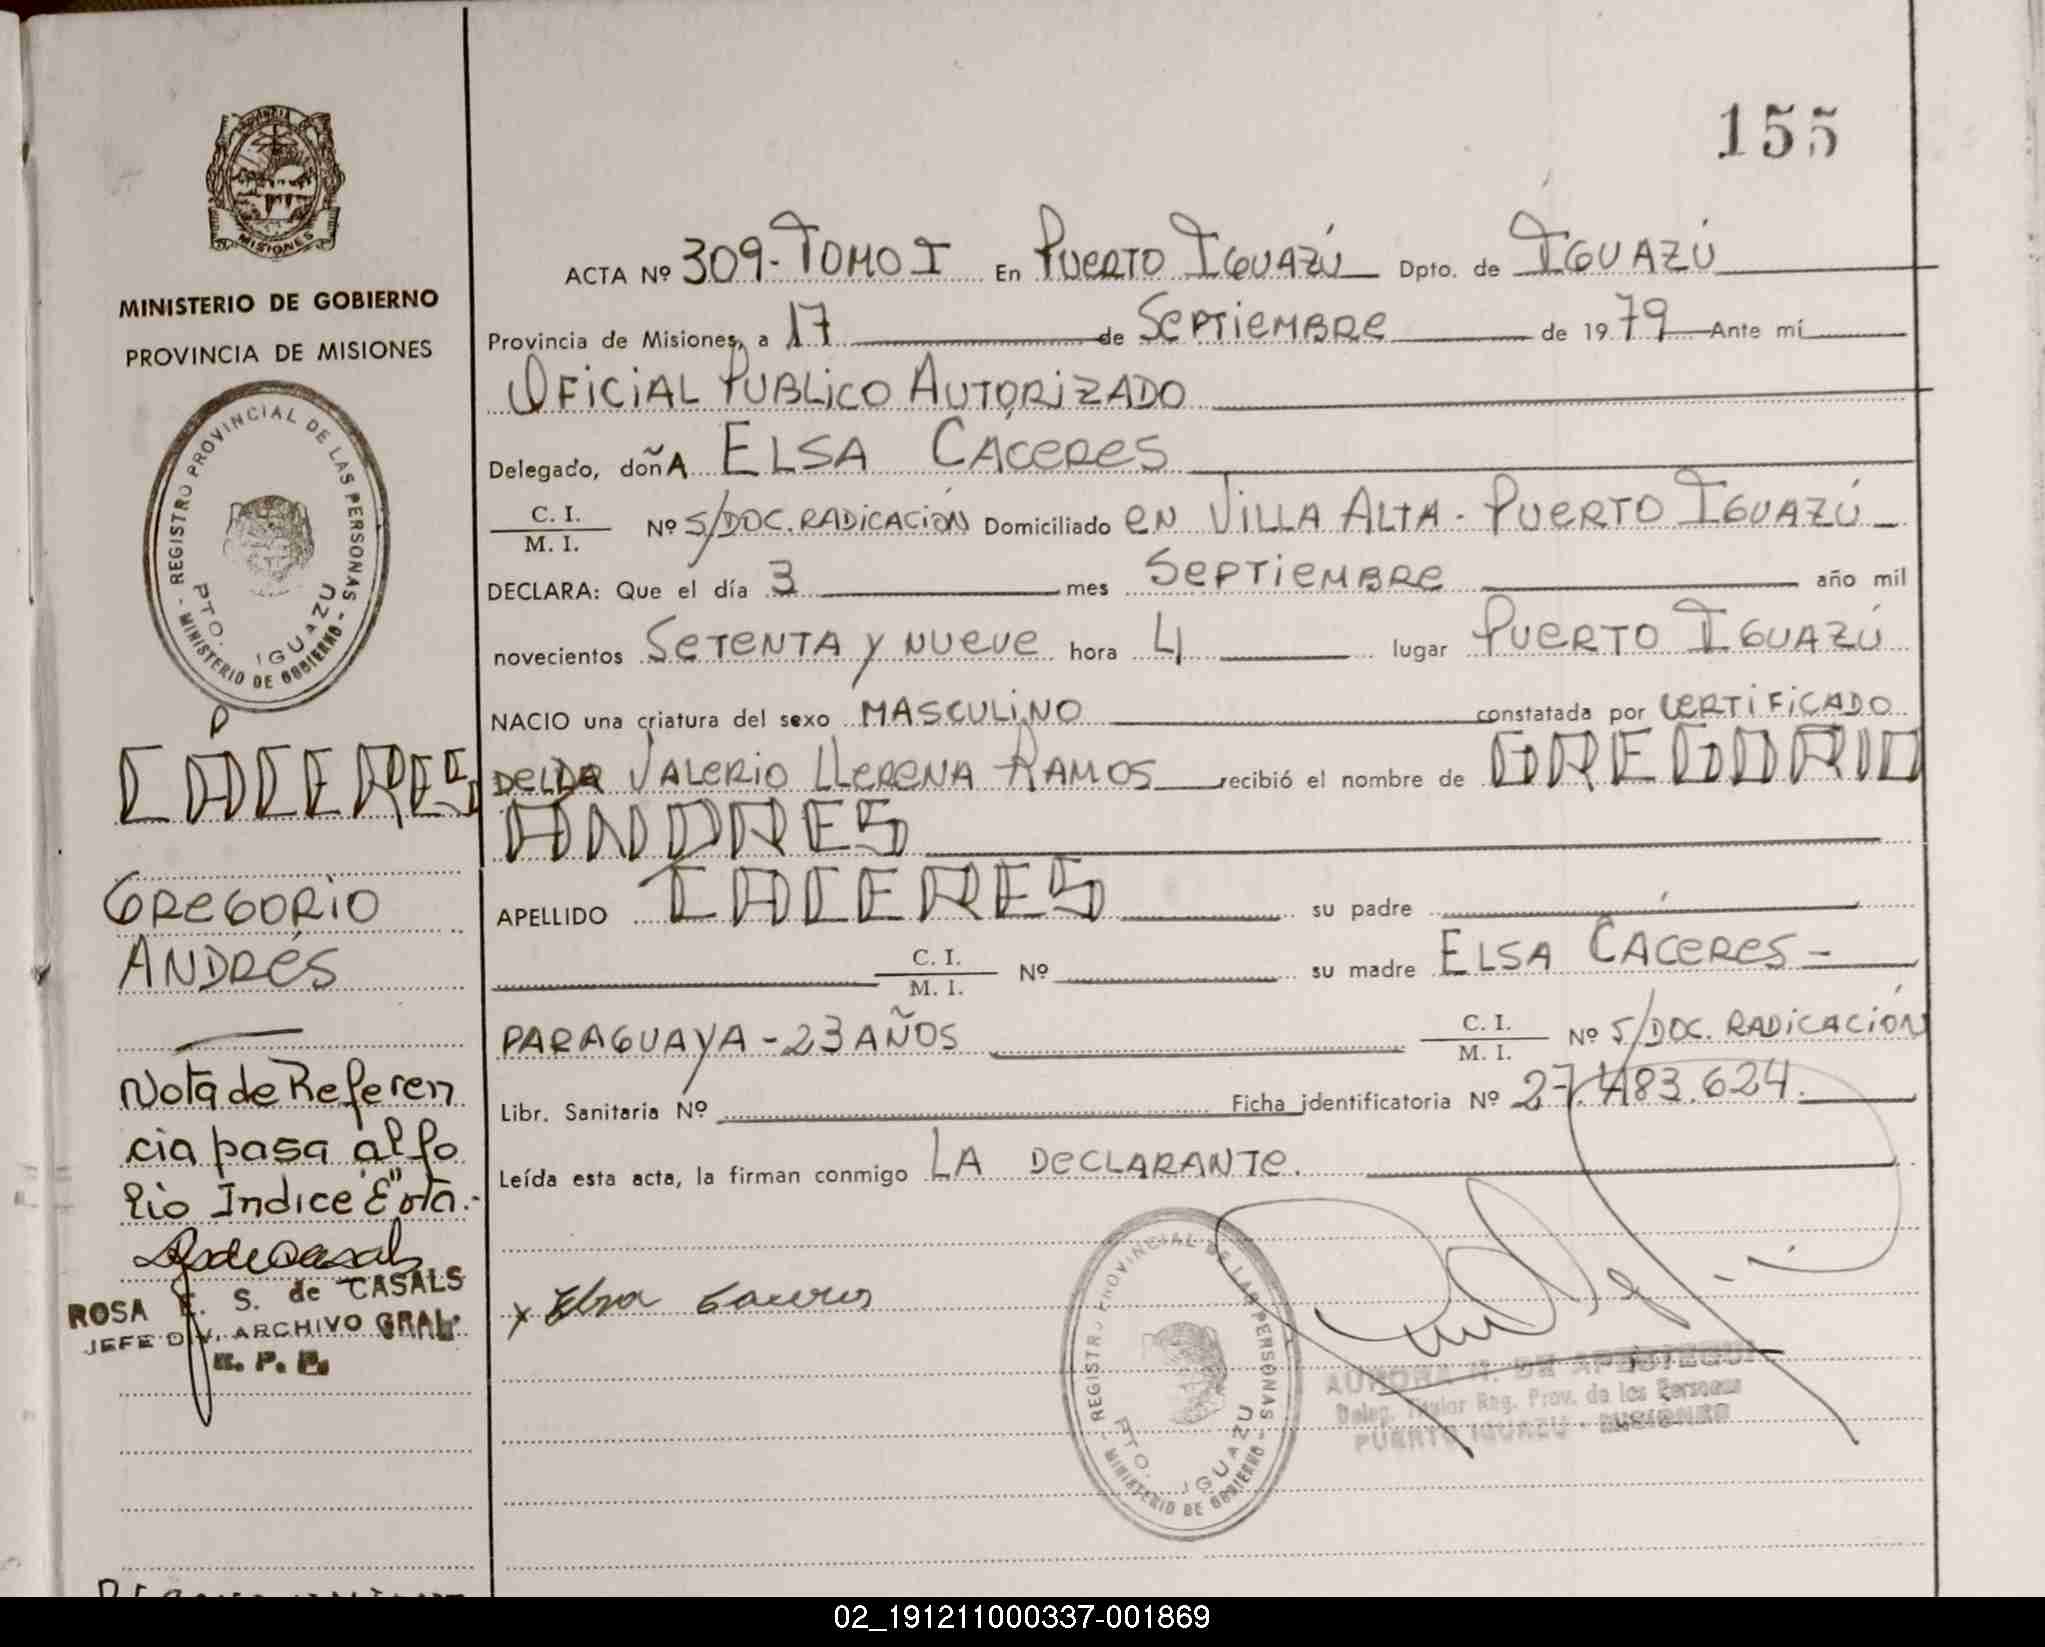 155
PROVINCIA
MISIONES
MINISTERIO DE GOBIERNO
PROVINCIA DE MISIONES
REGISTRO PROVINCIAL DE LAS PERSONAS
- MINISTERIO DE GOBIERNO -
PTO. IGUAZU
CACERES
GREGORIO
ANDRÉS
Nota de Referen
cia pasa al fo
lio Indice
ROSA E. S. de CASALS
JEFE DIV. ARCHIVO GRAL.
R. P. P.
ACTA Nº 309-TOMO I En PUERTO IGUAZÚ Dpto. de IGUAZÚ
Provincia de Misiones, a 17 de SEPTIEMBRE de 1979 Ante mí
OFICIAL PUBLICO AUTORIZADO
Delegado, doñA ELSA CACERES
C. I.
M. I.
Nº S/DOC. RADICACIÓN Domiciliado EN VILLA ALTA - PUERTO IGUAZÚ -
DECLARA: Que el día 3 mes SEPTIEMBRE año mil
novecientos SETENTA Y NUEVE hora 4 lugar PUERTO IGUAZÚ
NACIO una criatura del sexo MASCULINO constatada por CERTIFICADO
VALERIO LLERENA RAMOS recibió el nombre de GREGORIO
ANDRES
APELLIDO CACERES su padre
C. I.
M. I.
Nº su madre ELSA CACERES -
PARAGUAYA - 23 AÑOS
C. I.
M. I.
Nº S/DOC. RADICACIÓN
Libr. Sanitaria Nº Ficha identificatoria Nº 27.483.624.
Leída esta acta, la firman conmigo LA DECLARANTE.
x Elsa Caceres
REGISTRO PROVINCIAL DE LAS PERSONAS
- MINISTERIO DE GOBIERNO -
PTO. IGUAZU
AURORA H. DE APESTEGUI
Deleg. Titular Reg. Prov. de las Personas
PUERTO IGUAZU - MISIONES
02_191211000337-001869